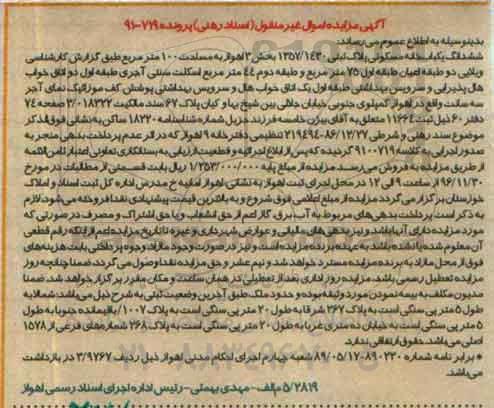 آگهی مزایده اموال غیر منقول (اسناد رهنی) پرونده 719-91
بدینوسیله به اطلاع عموم می رساند:
ششدانگ یکبابخانه مسکونی پلاک ثبتی 1357/1430 بخش 3 اهواز به مساحت 100 متر مربع طبق گزارش کارشناسی
ویلایی دو طبقه اعیان طبقه اول 75 متر مربع و طبقه دوم 44 متر مربع اسکلت مبنی آجری طبقه اول دو اتاق خواب
هال پذیرایی و سرویس بهداشتی طبقه اول یک اتاق خواب هال و سرویس بهداشتی پوشش کف موزائیک نمای آجر
سه سانت واقع در اهواز کمپلوی جنوبی خیابان جلالی بین شیخ بهاء و کیان پلاک 67 سند مالکیت 3/018322 صفحه 74
دفتر 60 ذیل ثبت 11664 متعلق به آقای بیژن خامسه فرزند جبریل شماره شناسنامه 18220 ساکن به نشانی فوق الذکر
موضوع سند رهنی و شرطی 86/12/27-219494 تنظیمی دفترخانه 9 اهواز که در اثر عدم پرداخت بدهی منجر به
صدور اجرایی به کلاسه 9100719 گردیده که پس از ابلاغ اجرائیه و قطعیت ارزیابی به بستانکاری تعاونی اعتبار ثامن الائمه
از طریق مزایده به فروش می رسد. مزایده از مبلغ پایه 1/253/000/000 ریال بابت قسمتی از مطالبات در مورخ
96/11/30 از ساعت 9 الی 12 در محل اجرای ثبت اهواز به نشانی: اهواز امانیه خ مدرس اداره کل ثبت اسناد و املاک
خوزستان برگزار می گردد مزایده از مبلغ اعلامی فوق شروع و به بالاترین قیمت پیشنهادی نقدا فروخته می شود. لازم
به ذکر است پرداخت بدهی های مربوط به آب، برق، گاز اعم از حق انشعاب و یا حق اشتراک و مصرف در صورتی که
مورد مزایده دارای آنها باشد و نیز بدهی های مالیاتی و عوارض شهرداری و غیره تا تاریخ مزایده اعم از اینکه رقم قطعی
آن معلوم شده یا نشده باشد به عهده برنده مزایده است و نیز در صورت وجود مازاد وجوه پرداختی بابت هزینه های
فوق از محل مازاد به برنده مزایده مسترد خواهد شد و نیم عشر و حق مزایده نقدا وصول می گردد. ضمنا چنانچه روز
مزایده تعطیل رسمی باشد، مزایده روز اداری بعد از تعطیلی در همان ساعت و مکان مقرر برگزار خواهد شد. ضمنا
مدیون مکلف به بیمه نمودن مورد وثیقه بوده و حدود ملک طبق آخرین وضعیت ثبتی به شرح ذیل می باشد: شمالا به
طول 5 متر پی سنگی است به پلاک 267 شرقا به طول 20 متر پی سنگی است به پلاک 1007/ باقیمانده جنوبا به طول
5 متر پی سنگی است به خیابان ده متری غربا به طول 20 متر پی سنگی است به پلاک 268 شماره های فرعی از 1578
اصلی می باشد. حقوق ارتفاقی ندارد.
* برابر نامه شماره 890230-89/05/17 شعبه چهارم اجرای احکام مدنی اهواز ذیل ردیف 3/9267 در بازداشت
می باشد.
5/2819 م الف - مهدی بهمئی - رئیس اداره اجرای اسناد رسمی اهواز